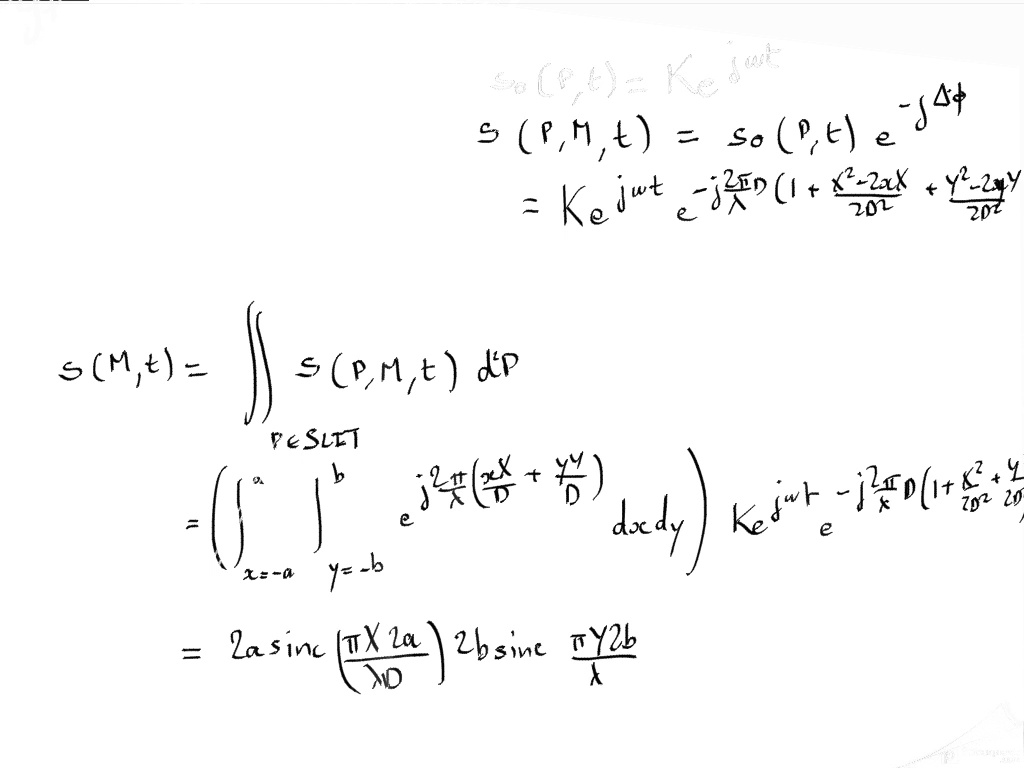 so(P,t) = Ke^{jωt}
s(P,M,t) = so(P,t) e^{-jΔφ}
= Ke^{jωt} e^{-j\frac{2π}{λ}D(1 + \frac{X²-2xX}{2D²} + \frac{Y²-2yY}{2D²}}
s(M,t) = ∬_{P∈SLIT} s(P,M,t) d²P
= (∫_{x=-a}^{a} ∫_{y=-b}^{b} e^{j\frac{2π}{λ}(\frac{xX}{D} + \frac{yY}{D})} dxdy) Ke^{jωt} e^{-j\frac{2π}{λ}D(1+\frac{X²}{2D²}+\frac{Y}{2D²}}
= 2a sinc(\frac{πX2a}{λD}) 2b sinc \frac{πY2b}{λ}